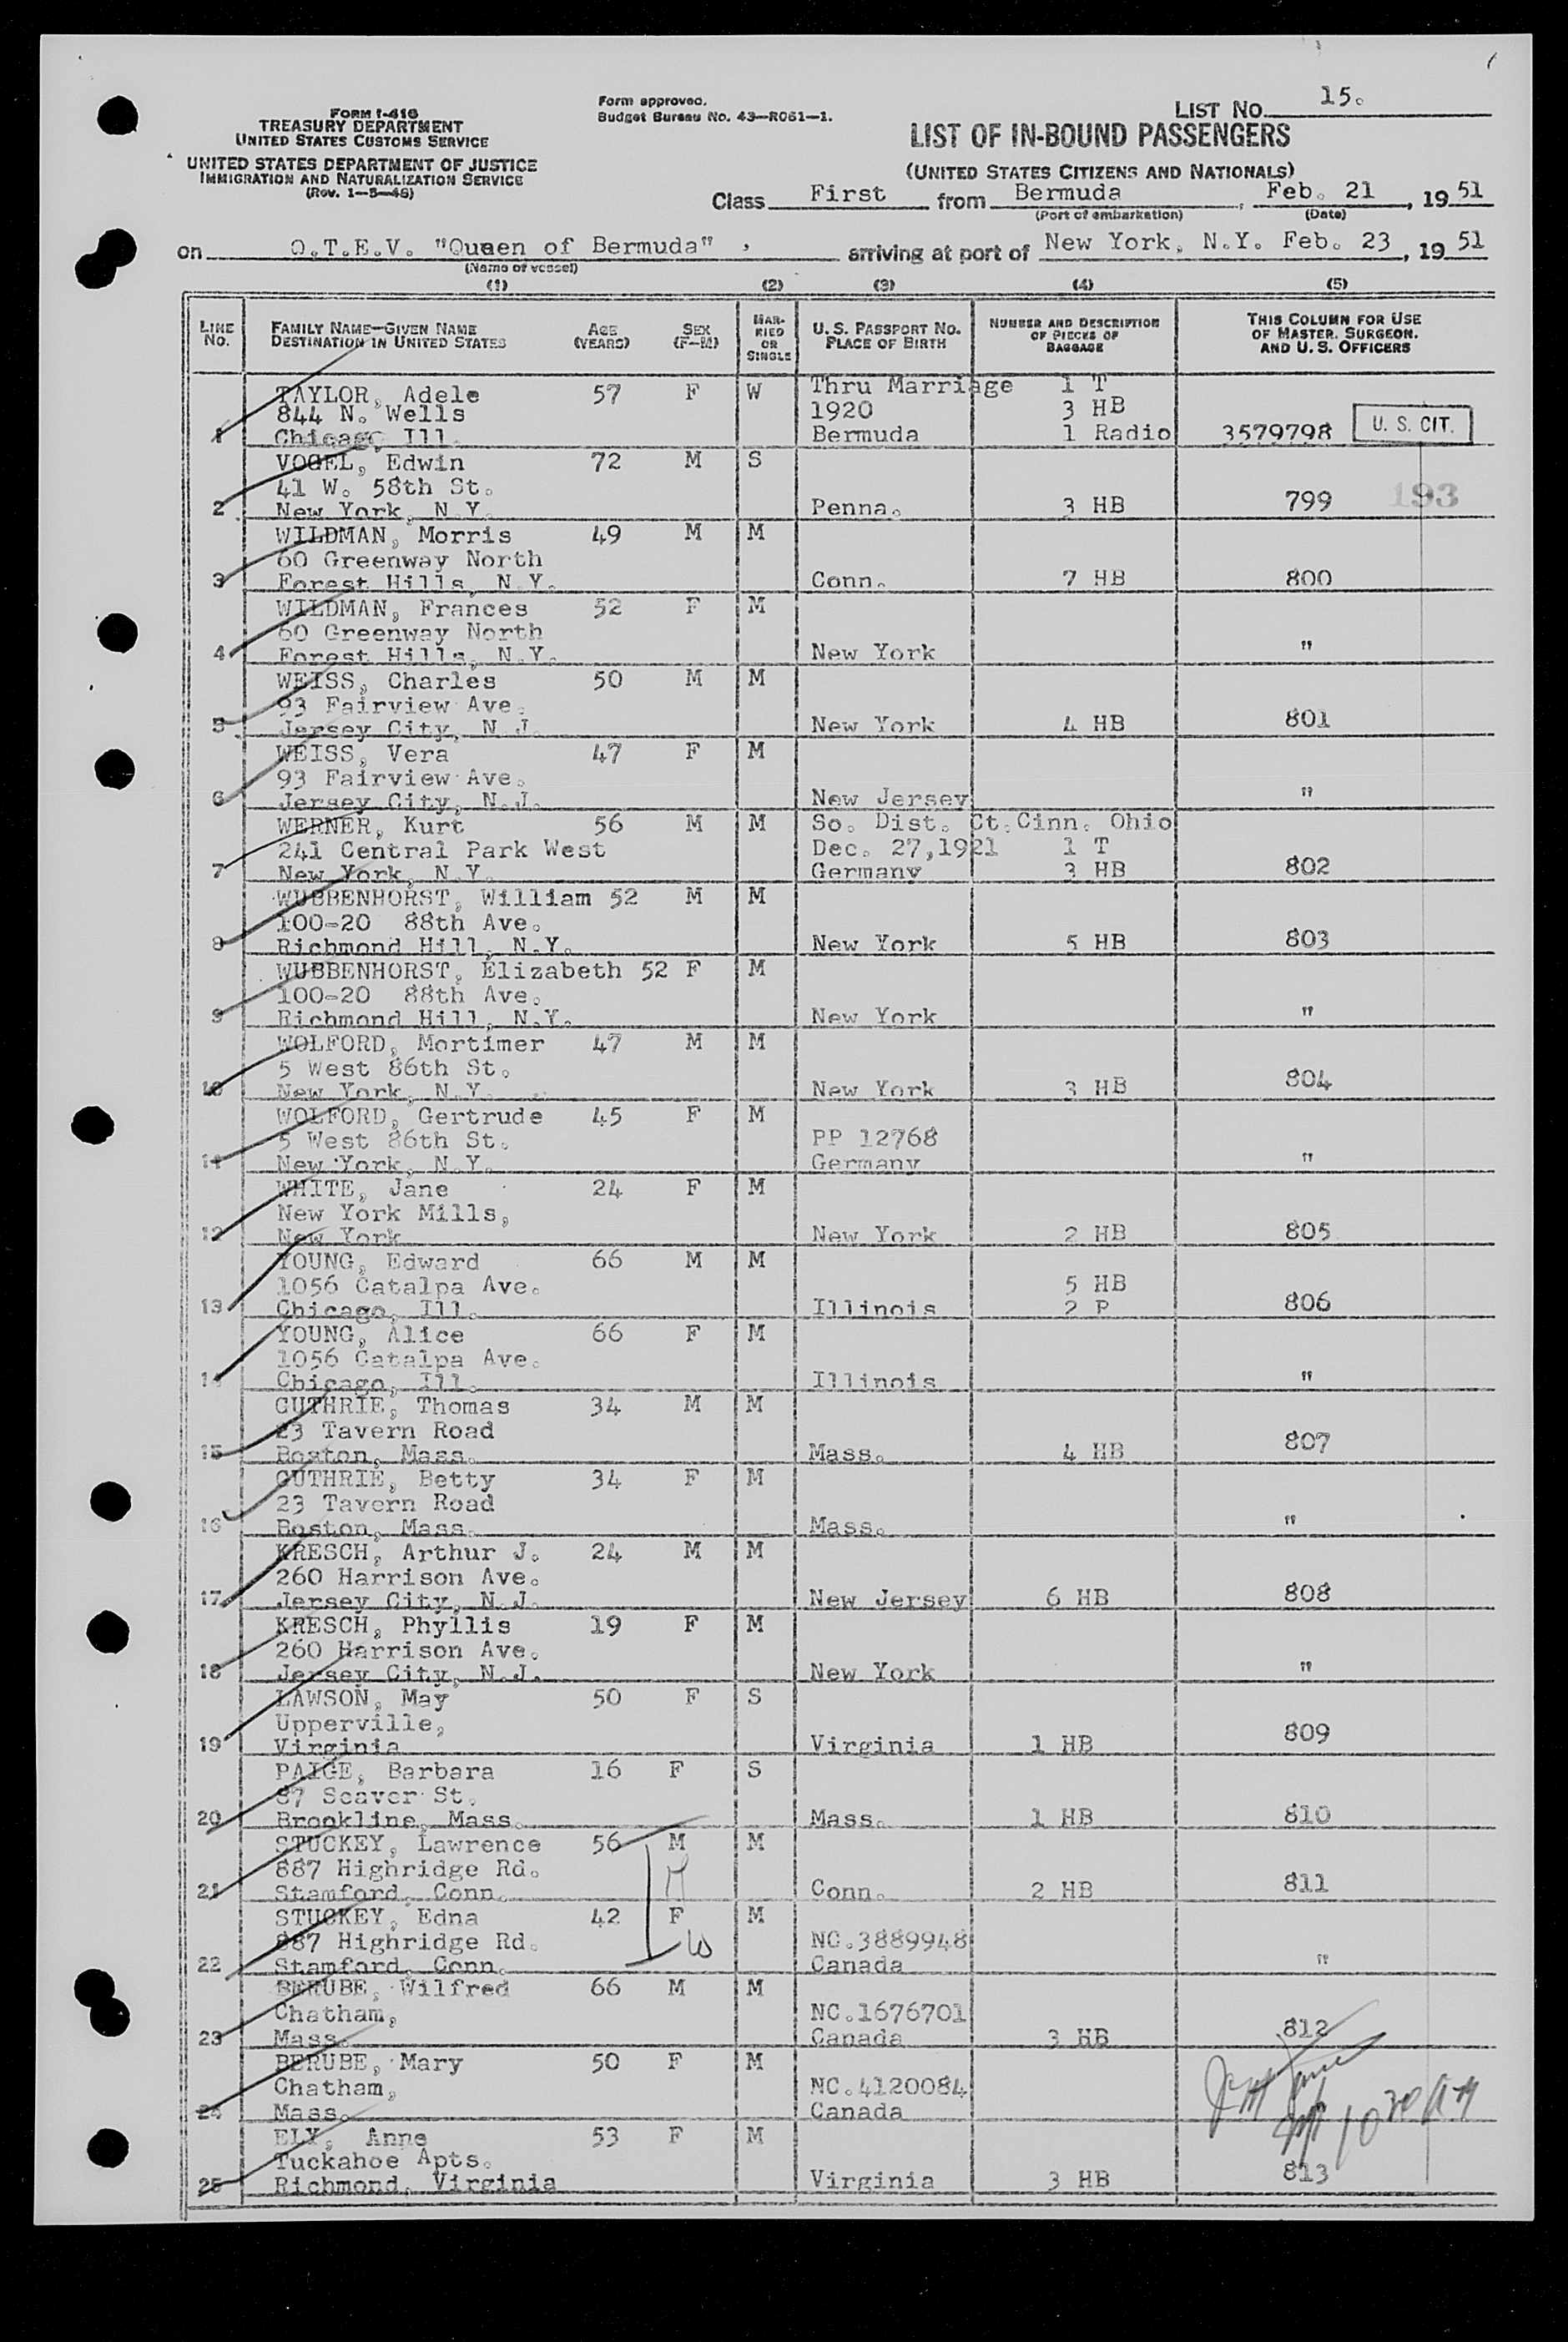 LIST NO. 15.
FORM I-416
TREASURY DEPARTMENT
UNITED STATES CUSTOMS SERVICE
UNITED STATES DEPARTMENT OF JUSTICE
IMMIGRATION AND NATURALIZATION SERVICE
(Rev. 1-5-46)
Form approved.
Budget Bureau No. 43-R061-1.
LIST OF IN-BOUND PASSENGERS
(UNITED STATES CITIZENS AND NATIONALS)
Class First from Bermuda, Feb. 21, 1951
(Port of embarkation) (Date)
on Q.T.E.V. "Queen of Bermuda", arriving at port of New York, N.Y. Feb. 23, 1951
(Name of vessel)
(1) (2) (3) (4) (5)
LINE NO. FAMILY NAME—GIVEN NAME DESTINATION IN UNITED STATES AGE (YEARS) SEX (F-M) MARRIED OR SINGLE U. S. PASSPORT NO. PLACE OF BIRTH NUMBER AND DESCRIPTION OF PIECES OF BAGGAGE THIS COLUMN FOR USE OF MASTER, SURGEON, AND U. S. OFFICERS
TAYLOR, Adele 57 F W Thru Marriage 1 T
844 N. Wells 1920 3 HB
1 Chicago Ill. Bermuda 1 Radio 3579798 U. S. CIT.
VOGEL, Edwin 72 M S
41 W. 58th St.
2 New York, N.Y. Penna. 3 HB 799 193
WILDMAN, Morris 49 M M
60 Greenway North
3 Forest Hills, N.Y. Conn. 7 HB 800
WILDMAN, Frances 52 F M
60 Greenway North
4 Forest Hills, N.Y. New York "
WEISS, Charles 50 M M
93 Fairview Ave.
5 Jersey City, N.J. New York 4 HB 801
WEISS, Vera 47 F M
93 Fairview Ave.
6 Jersey City, N.J. New Jersey "
WERNER, Kurt 56 M M So. Dist. Ct. Cinn. Ohio
241 Central Park West Dec. 27,1921 1 T
7 New York, N.Y. Germany 3 HB 802
WUBBENHORST, William 52 M M
100-20 88th Ave.
8 Richmond Hill, N.Y. New York 5 HB 803
WUBBENHORST, Elizabeth 52 F M
100-20 88th Ave.
9 Richmond Hill, N.Y. New York "
WOLFORD, Mortimer 47 M M
5 West 86th St.
10 New York, N.Y. New York 3 HB 804
WOLFORD, Gertrude 45 F M
5 West 86th St. PP 12768
11 New York, N.Y. Germany "
WHITE, Jane 24 F M
New York Mills,
12 New York New York 2 HB 805
YOUNG, Edward 66 M M
1056 Catalpa Ave. 5 HB
13 Chicago, Ill. Illinois 2 P 806
YOUNG, Alice 66 F M
1056 Catalpa Ave.
14 Chicago, Ill. Illinois "
GUTHRIE, Thomas 34 M M
23 Tavern Road
15 Boston, Mass. Mass. 4 HB 807
GUTHRIE, Betty 34 F M
23 Tavern Road
16 Boston, Mass. Mass. "
KRESCH, Arthur J. 24 M M
260 Harrison Ave.
17 Jersey City, N.J. New Jersey 6 HB 808
KRESCH, Phyllis 19 F M
260 Harrison Ave.
18 Jersey City, N.J. New York "
LAWSON, May 50 F S
Upperville,
19 Virginia Virginia 1 HB 809
PAIGE, Barbara 16 F S
87 Seaver St.
20 Brookline, Mass. Mass. 1 HB 810
STUCKEY, Lawrence 56 M M
887 Highridge Rd.
21 Stamford, Conn. Conn. 2 HB 811
STUCKEY, Edna 42 F M
887 Highridge Rd. NC.3889948
22 Stamford, Conn. Canada "
BERUBE, Wilfred 66 M M
Chatham, NC.1676701
23 Mass. Canada 3 HB 812
BERUBE, Mary 50 F M
Chatham, NC.4120084
24 Mass. Canada
ELY, Anne 53 F M
Tuckahoe Apts.
25 Richmond, Virginia Virginia 3 HB 813